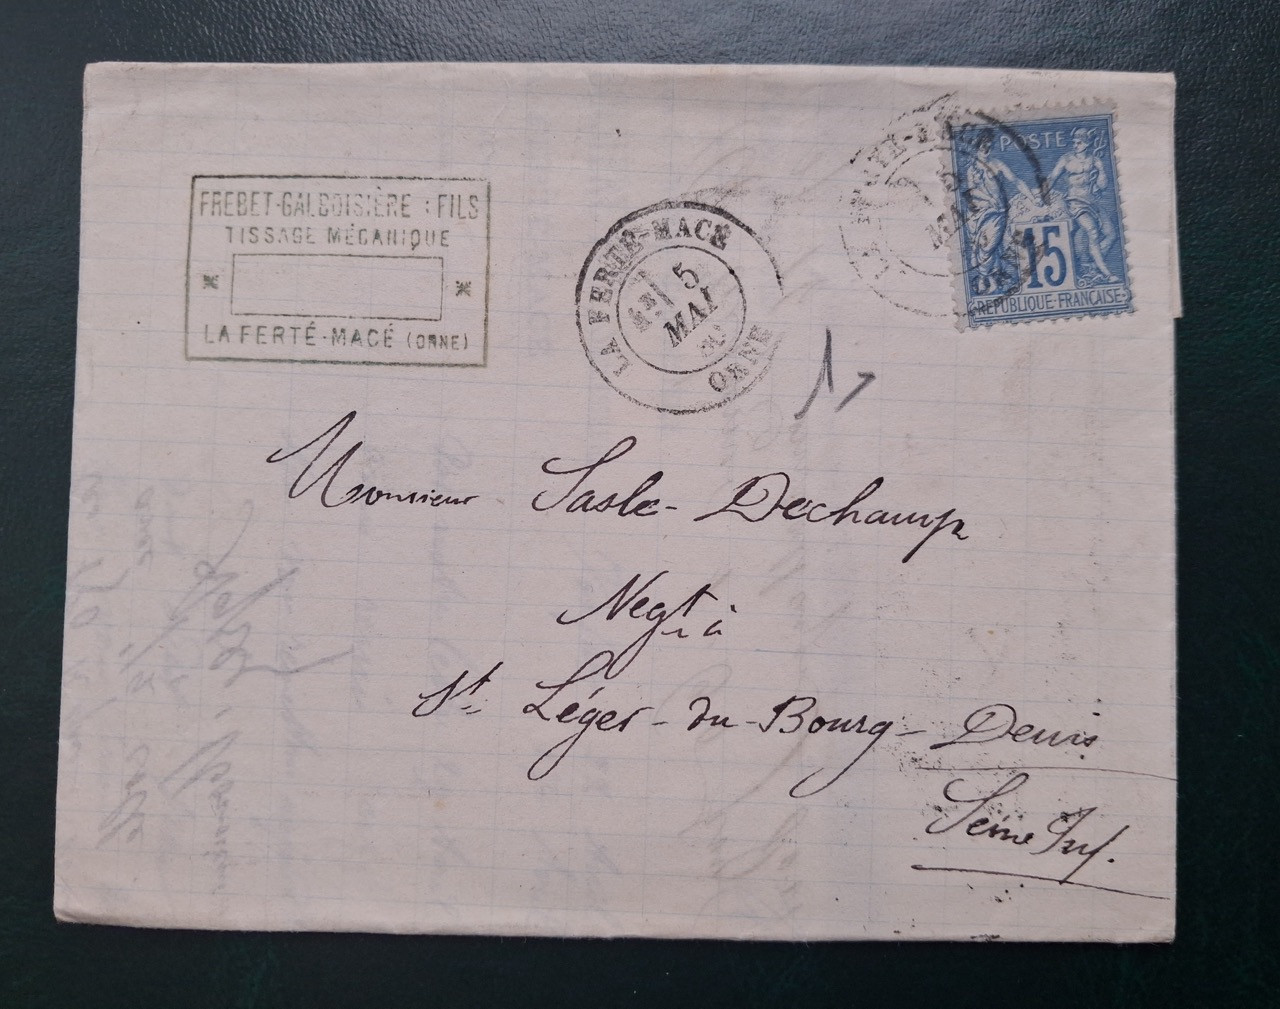 FREBET-GALBOISIÈRE & FILS
TISSAGE MÉCANIQUE
LA FERTÉ-MACÉ (ORNE)
LA FERTÉ-MACÉ
5
MAI
ORNE
LA FERTÉ-MACÉ
5
MAI
ORNE
POSTE
15
REPUBLIQUE FRANÇAISE
Monsieur Sasle-Dechamp
Negt à
St Léger-du-Bourg-Denis
Seine Inf.